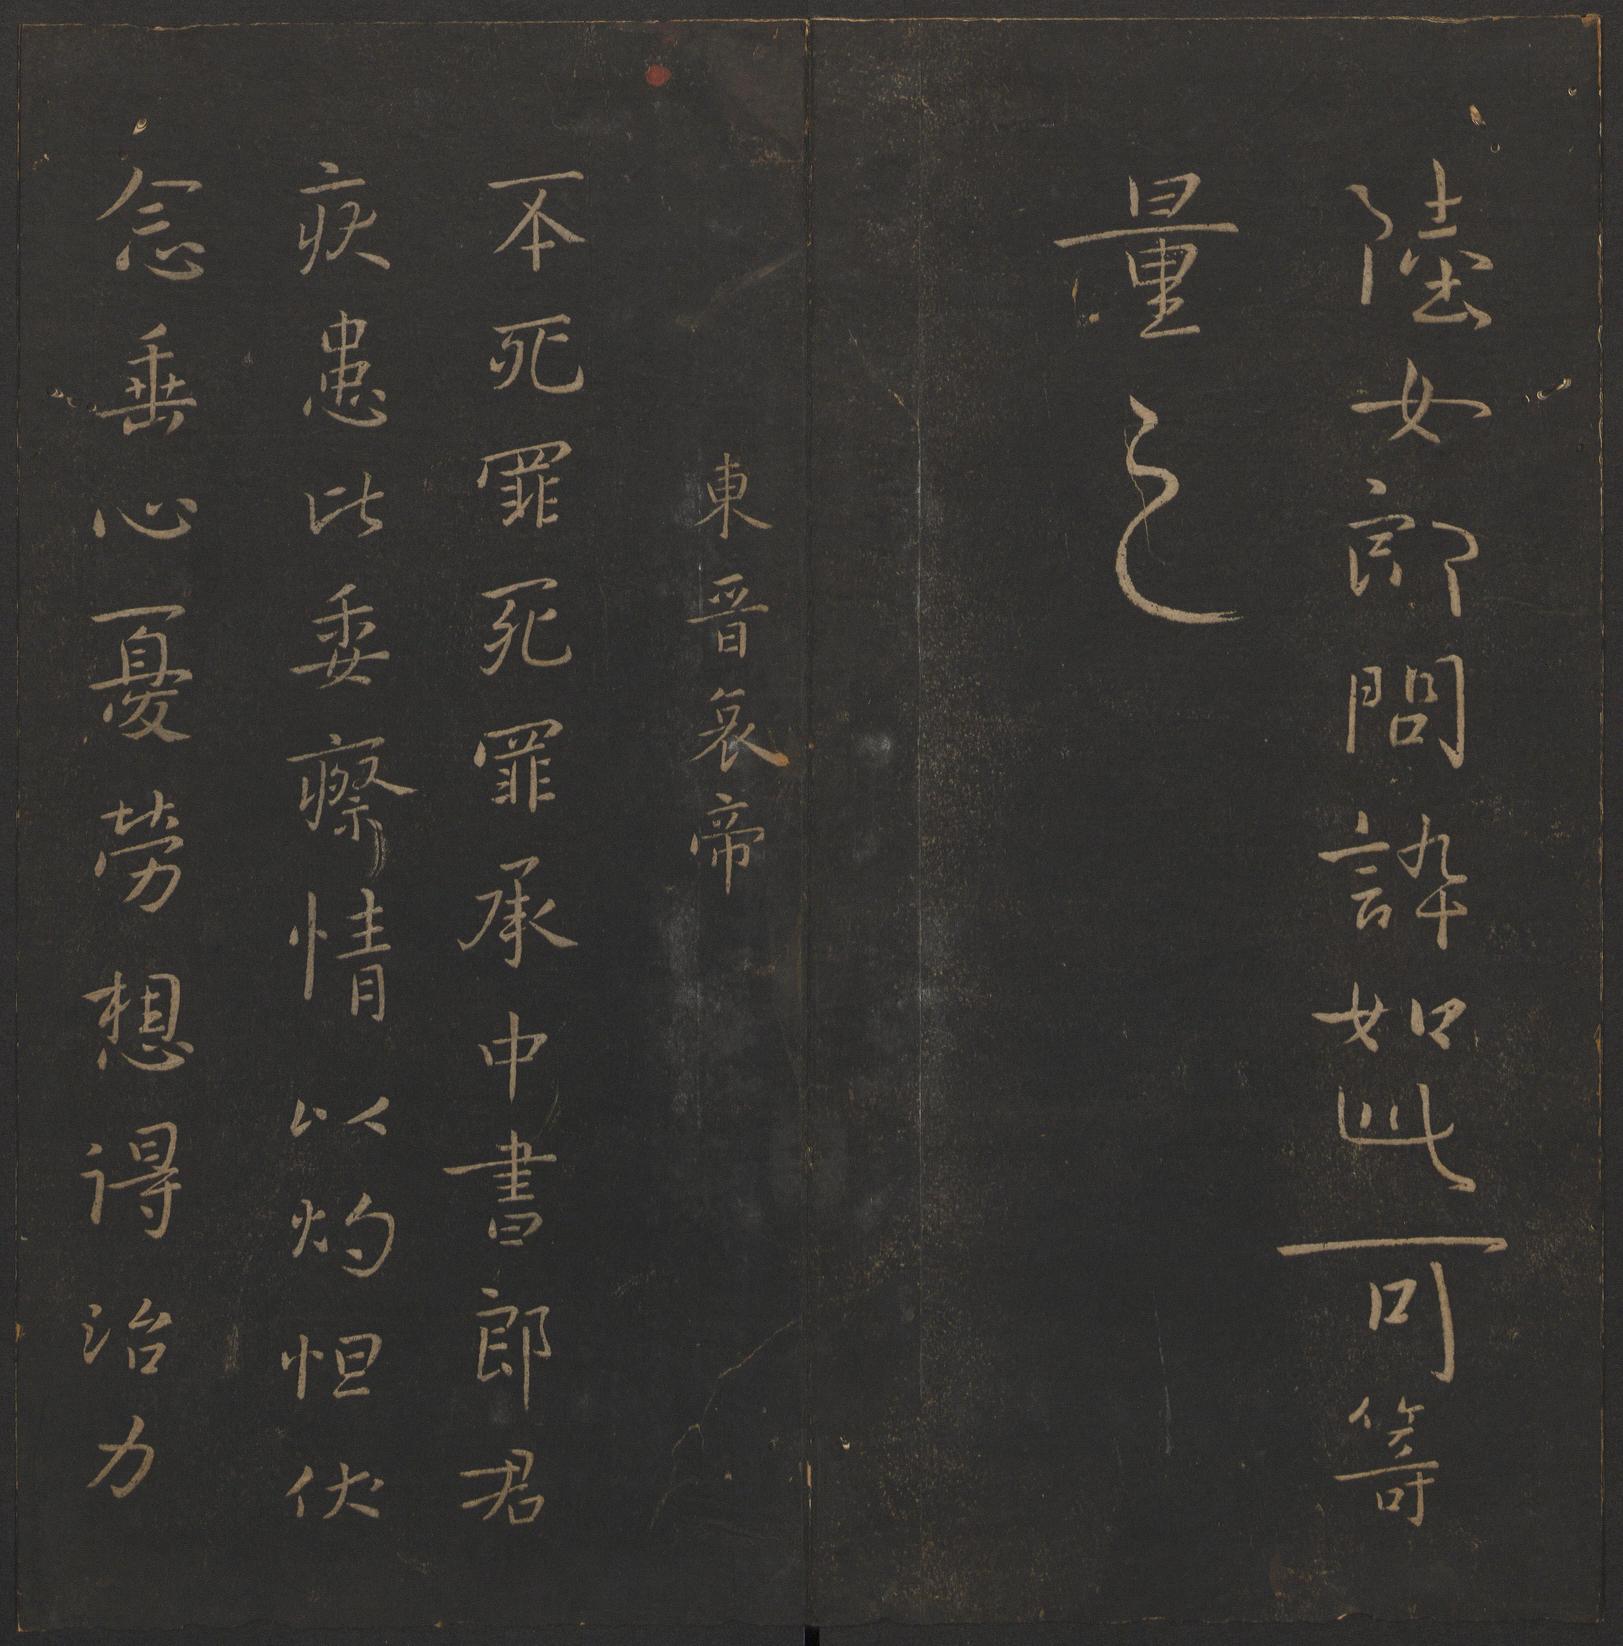 陸女郎問誶如此可籌
量之
東晉哀帝
丕死罪死罪承中書郎君
疾患比委瘵情以灼怛伏
念垂心憂勞想得治力